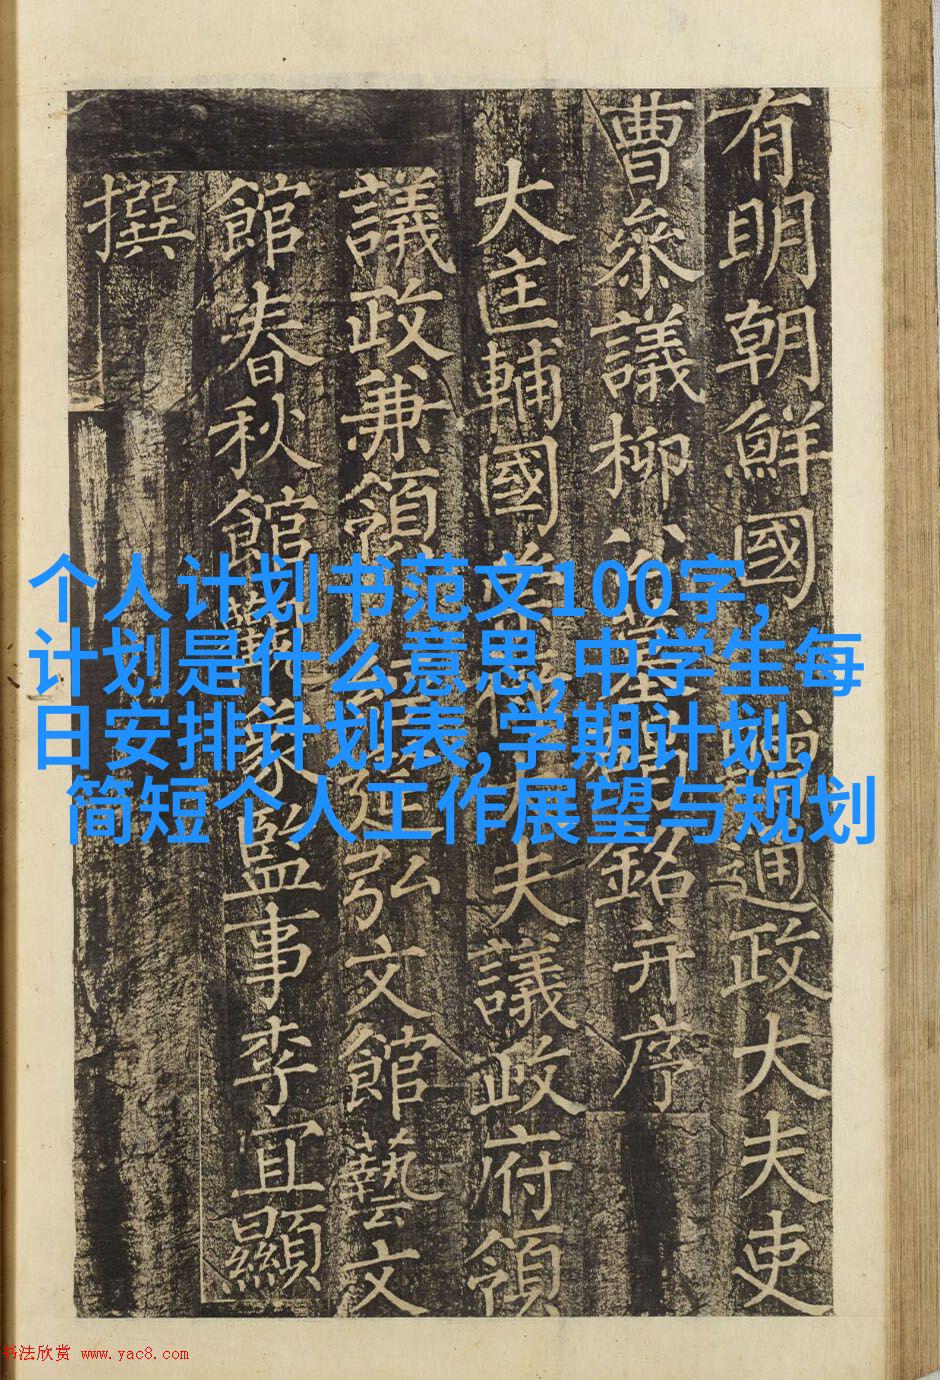 有明朝鮮國通政大夫吏
曹叅議柳公墓銘并序
大匡輔國大夫議政府領
議政兼領經筵弘文館藝文
館春秋館觀象監事李宜顯
撰
个人计划书范文100字,
计划是什么意思,中学生每
日安排计划表,学期计划,
简短个人工作展望与规划
书法欣赏 www.yac8.com